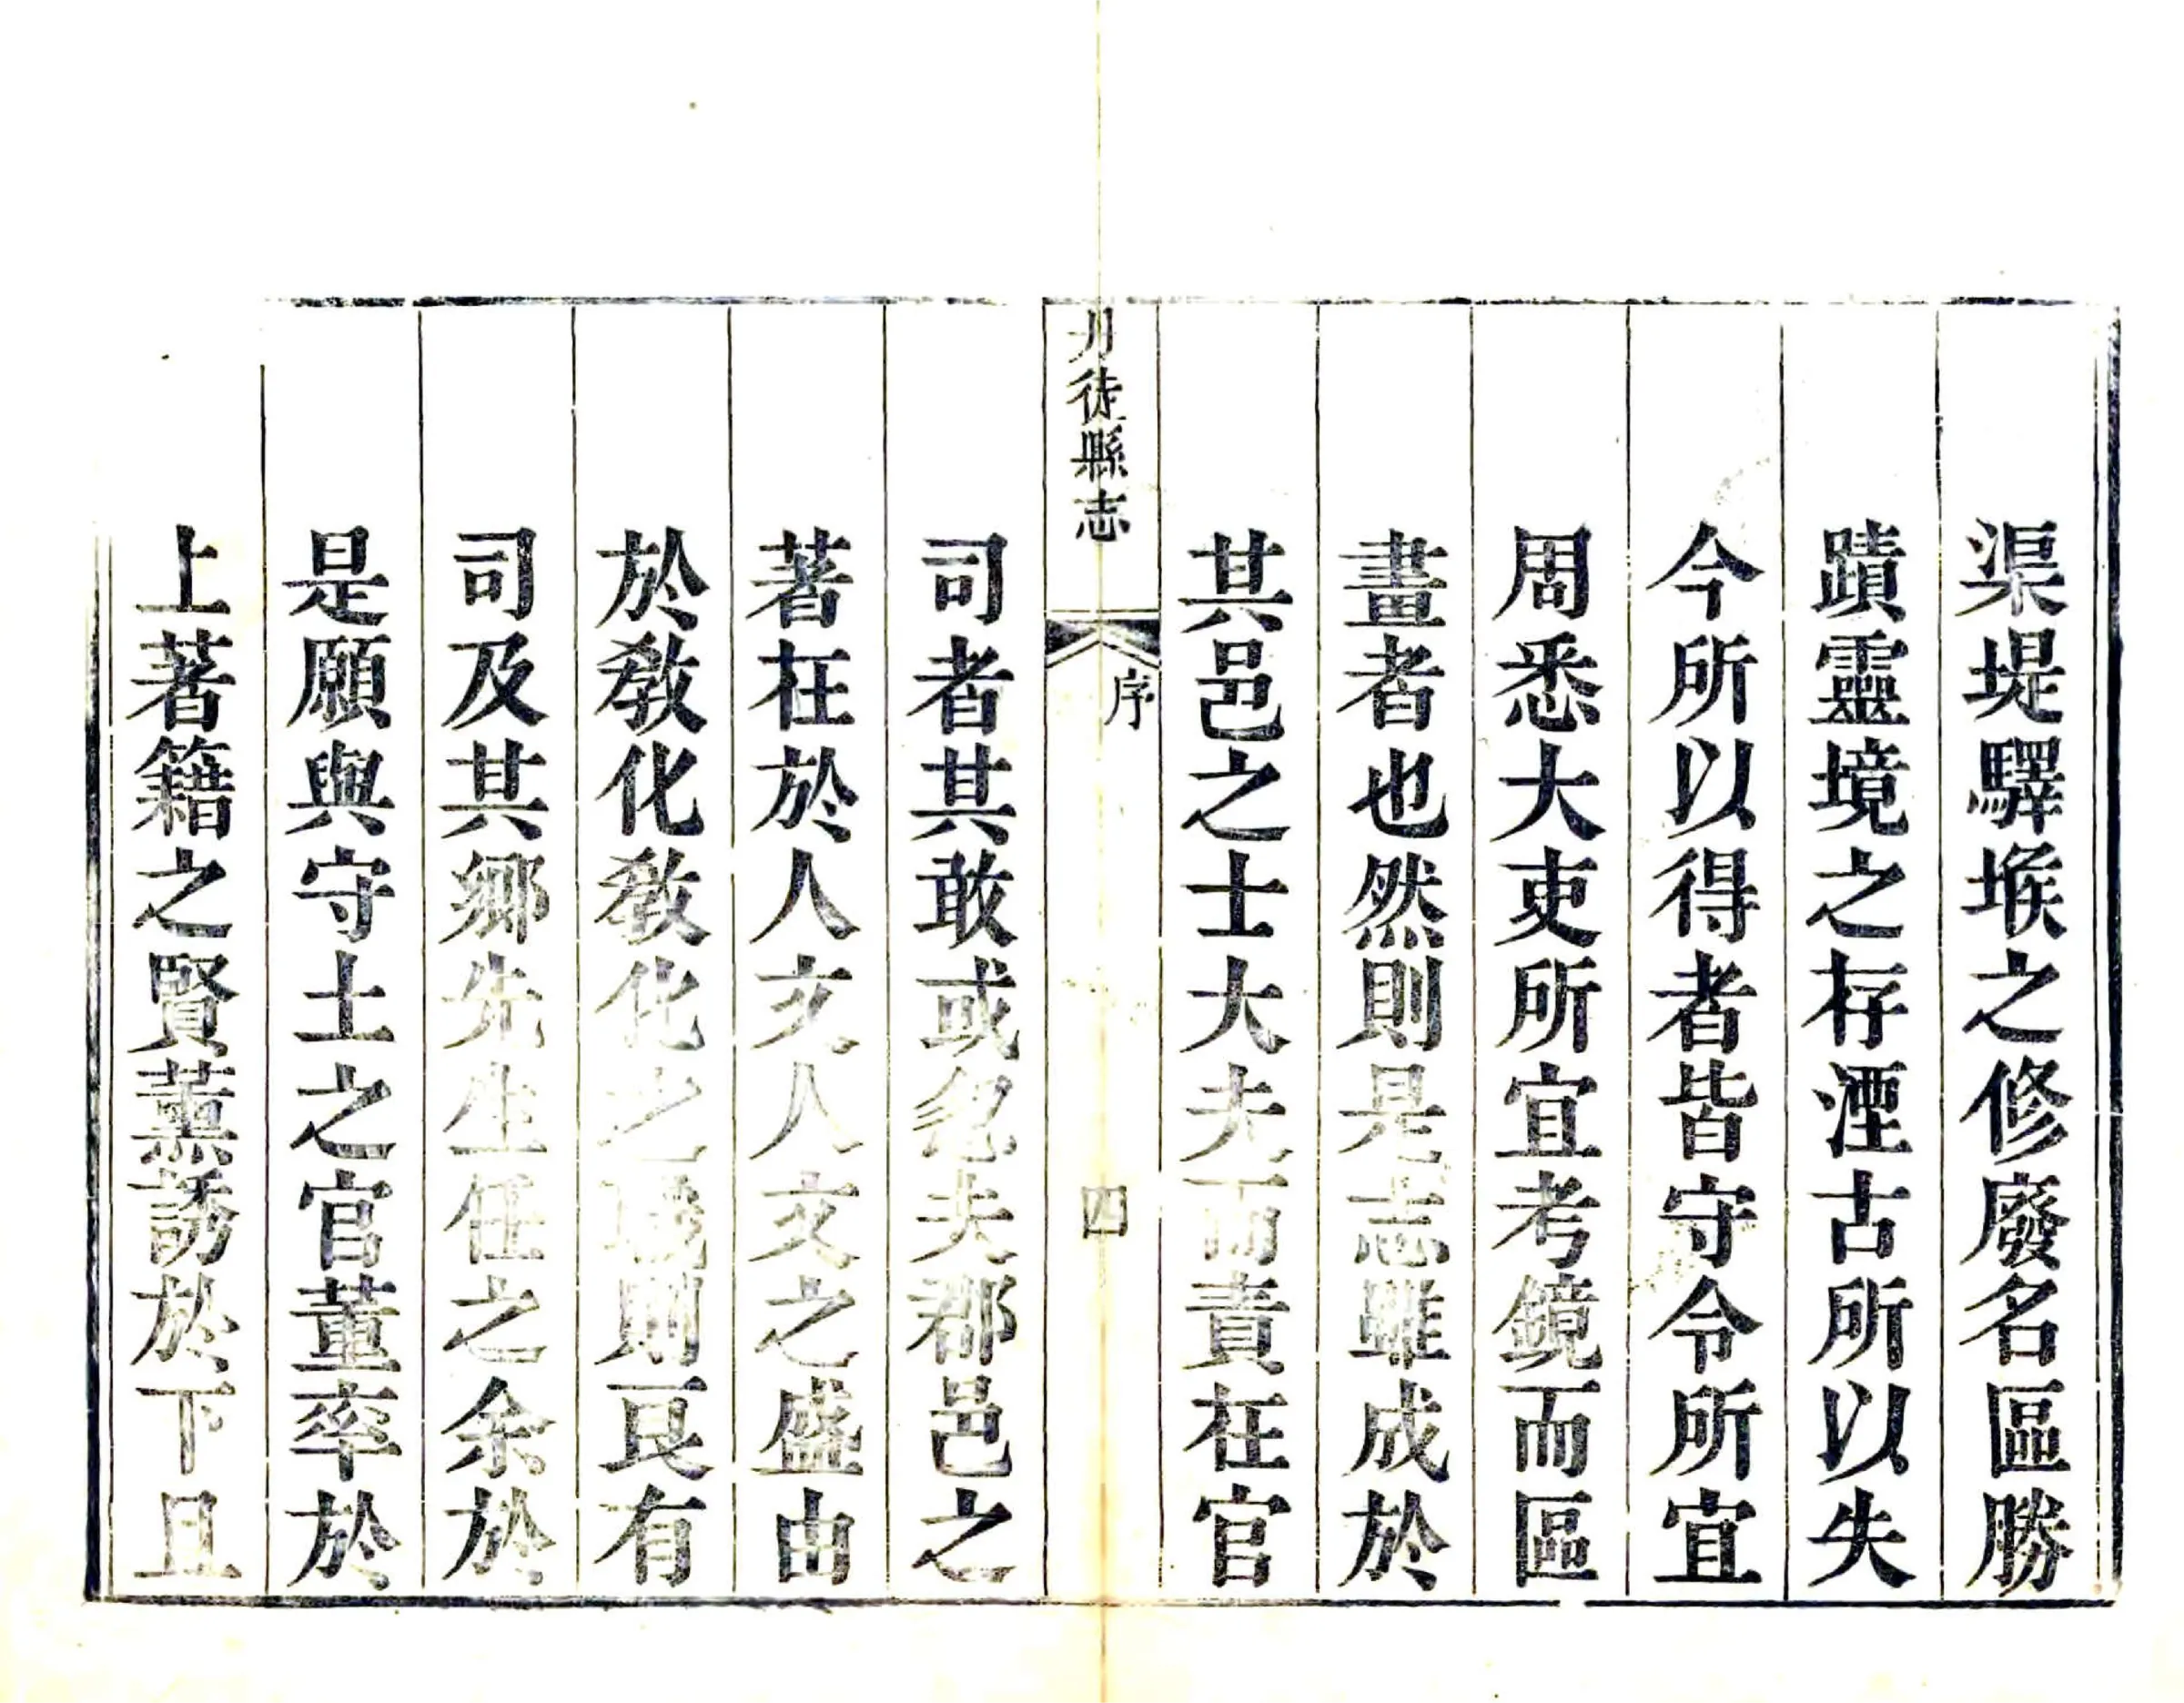 渠堤驛堠之修廢名區勝
蹟靈境之存湮古所以失
今所以得者皆守令所宜
周悉大吏所宜考鏡而區
畫者也然則是志雖成於
其邑之士大夫而責在官
丹徒縣志
序
四
司者其敢或忽夫郡邑之
著在於人文人文之盛由
於敎化敎化之職則長有
司及其鄉先生任之余於
是願與守土之官董率於
上著籍之賢薰誘於下且